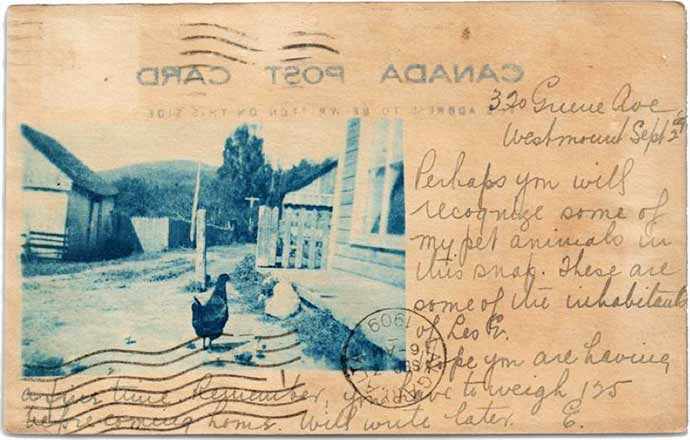 CANADA POST CARD
THE ADDRESS TO BE WRITTEN ON THIS SIDE
320 Grove Ave
Westmount Sept 2
Perhaps you will
recognize some of
my pet animals in
this snap. These are
some of the inhabitants
of Les E.
Hope you are having
a fine time. Remember, you have to weigh 125
before coming home. Will write later. E.
1909